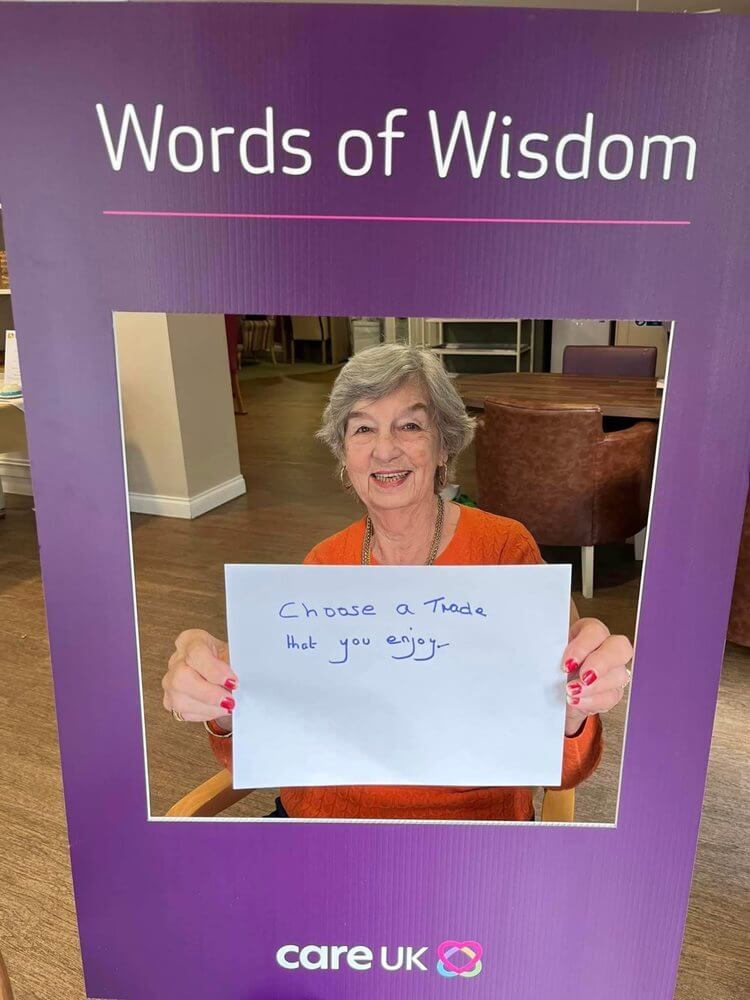 Words of Wisdom
Choose a Trade
that you enjoy.
care UK